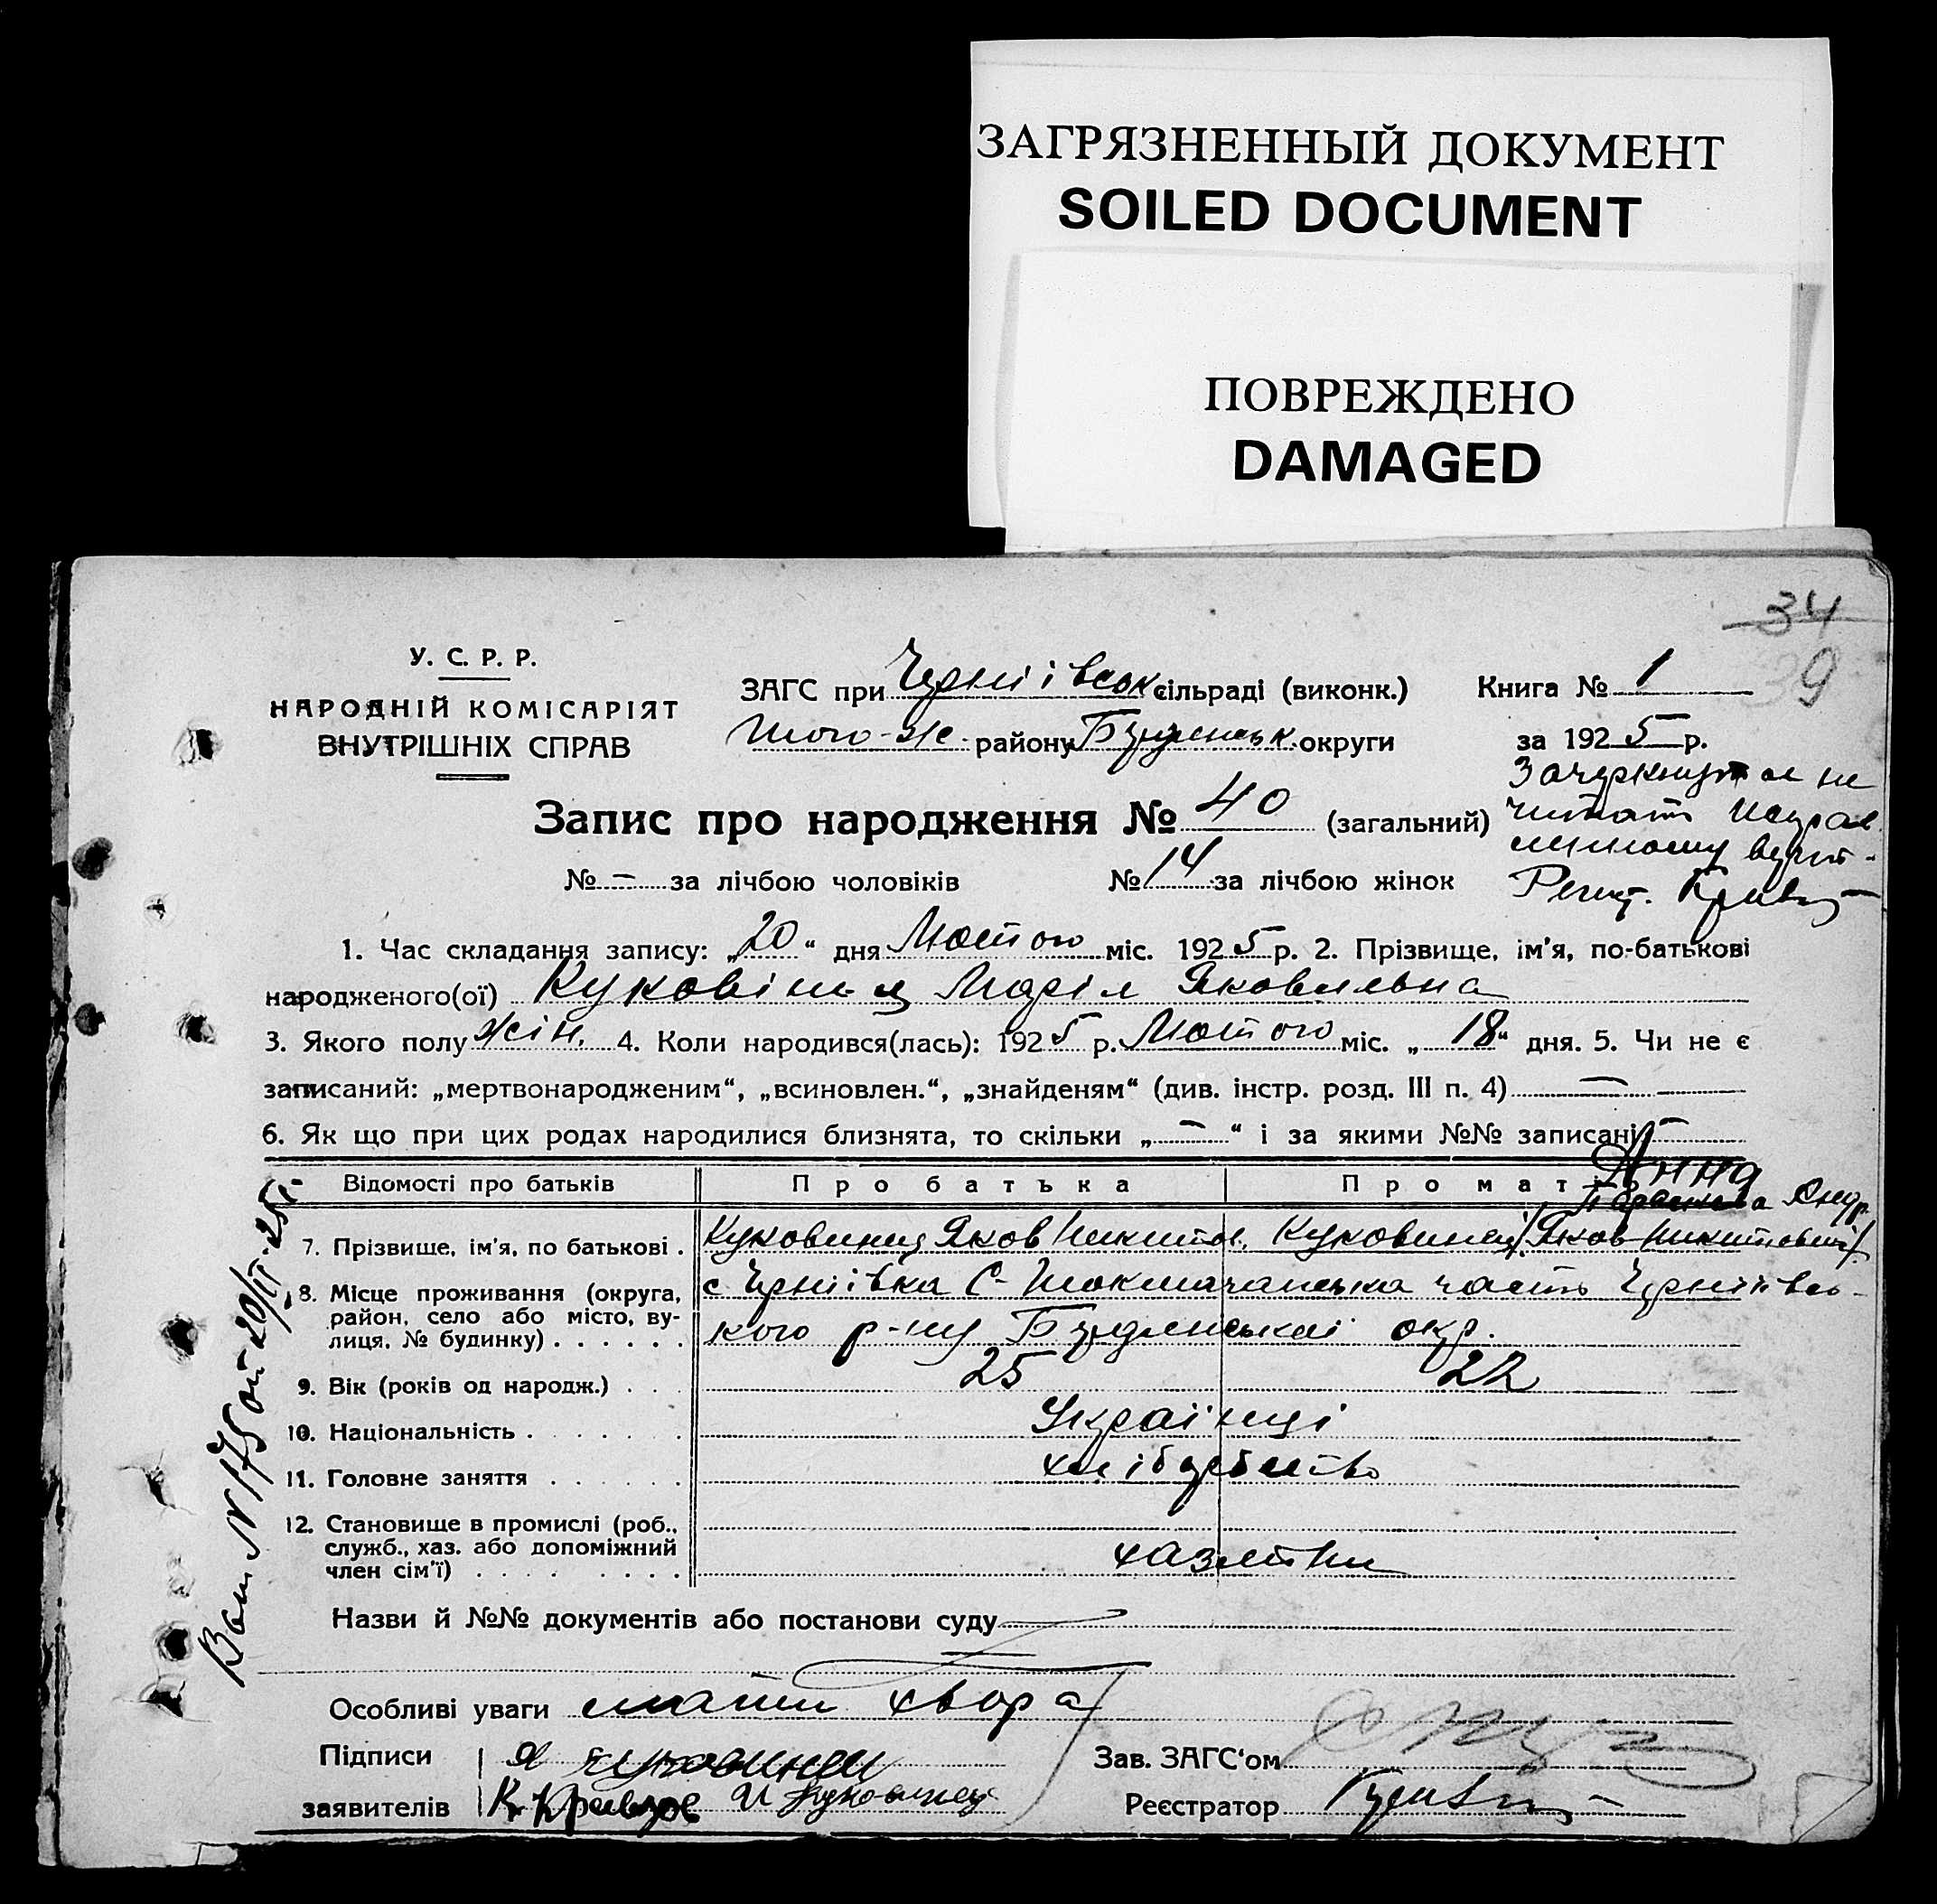 ЗАГРЯЗНЕННЫЙ ДОКУМЕНТ
SOILED DOCUMENT
ПОВРЕЖДЕНО
DAMAGED
34
39
У. С. Р. Р.
НАРОДНІЙ КОМІСАРІЯТ
ВНУТРІШНІХ СПРАВ
ЗАГС при Чернііівськ сільраді (виконк.)
того-же району Бердянськ. округи
Книга № 1
за 1925 р.
Зачеркнутое не
читать
Запис про народження № 40 (загальний)
№ - за лічбою чоловіків № 14 за лічбою жінок
1. Час складання запису: „20“ дня Лютого міс. 1925 р. 2. Прізвище, ім'я, по-батькові
народженого(ої) Куковінец Марія Яковлевна
3. Якого полу жін. 4. Коли народився(лась): 1925 р. Лютого міс. „18“ дня. 5. Чи не є
записаний: „мертвонародженим“, „всиновлен.“, „знайденям“ (див. інстр. розд. III п. 4) —
6. Як що при цих родах народилися близнята, то скільки „—“ і за якими №№ записані —
Анна
Відомості про батьків Про батька Про матір
Параскева Андр.
7. Прізвище, ім'я, по батькові . Куковинец Яков Никитов. Куковинец Яков Никитович
8. Місце проживання (округа, район, село або місто, вулиця, № будинку) . . . . . . с Черніівка С-Токмачанська часть Черніівсь-
кого р-ну Бердянської окр.
9. Вік (років од народж.) . . . 25 22
10. Національність . . . . . . . Українці
11. Головне заняття . . . . . . хлібодобство
12. Становище в промислі (роб.,
служб., хаз. або допоміжний
член сім'ї) . . . . . . . . . хазяїни
Назви й №№ документів або постанови суду
Особливі уваги мати хвора
Підписи Я Куковинец
заявителів К. Кравцов И Куковинец
Зав. ЗАГС'ом
Реєстратор